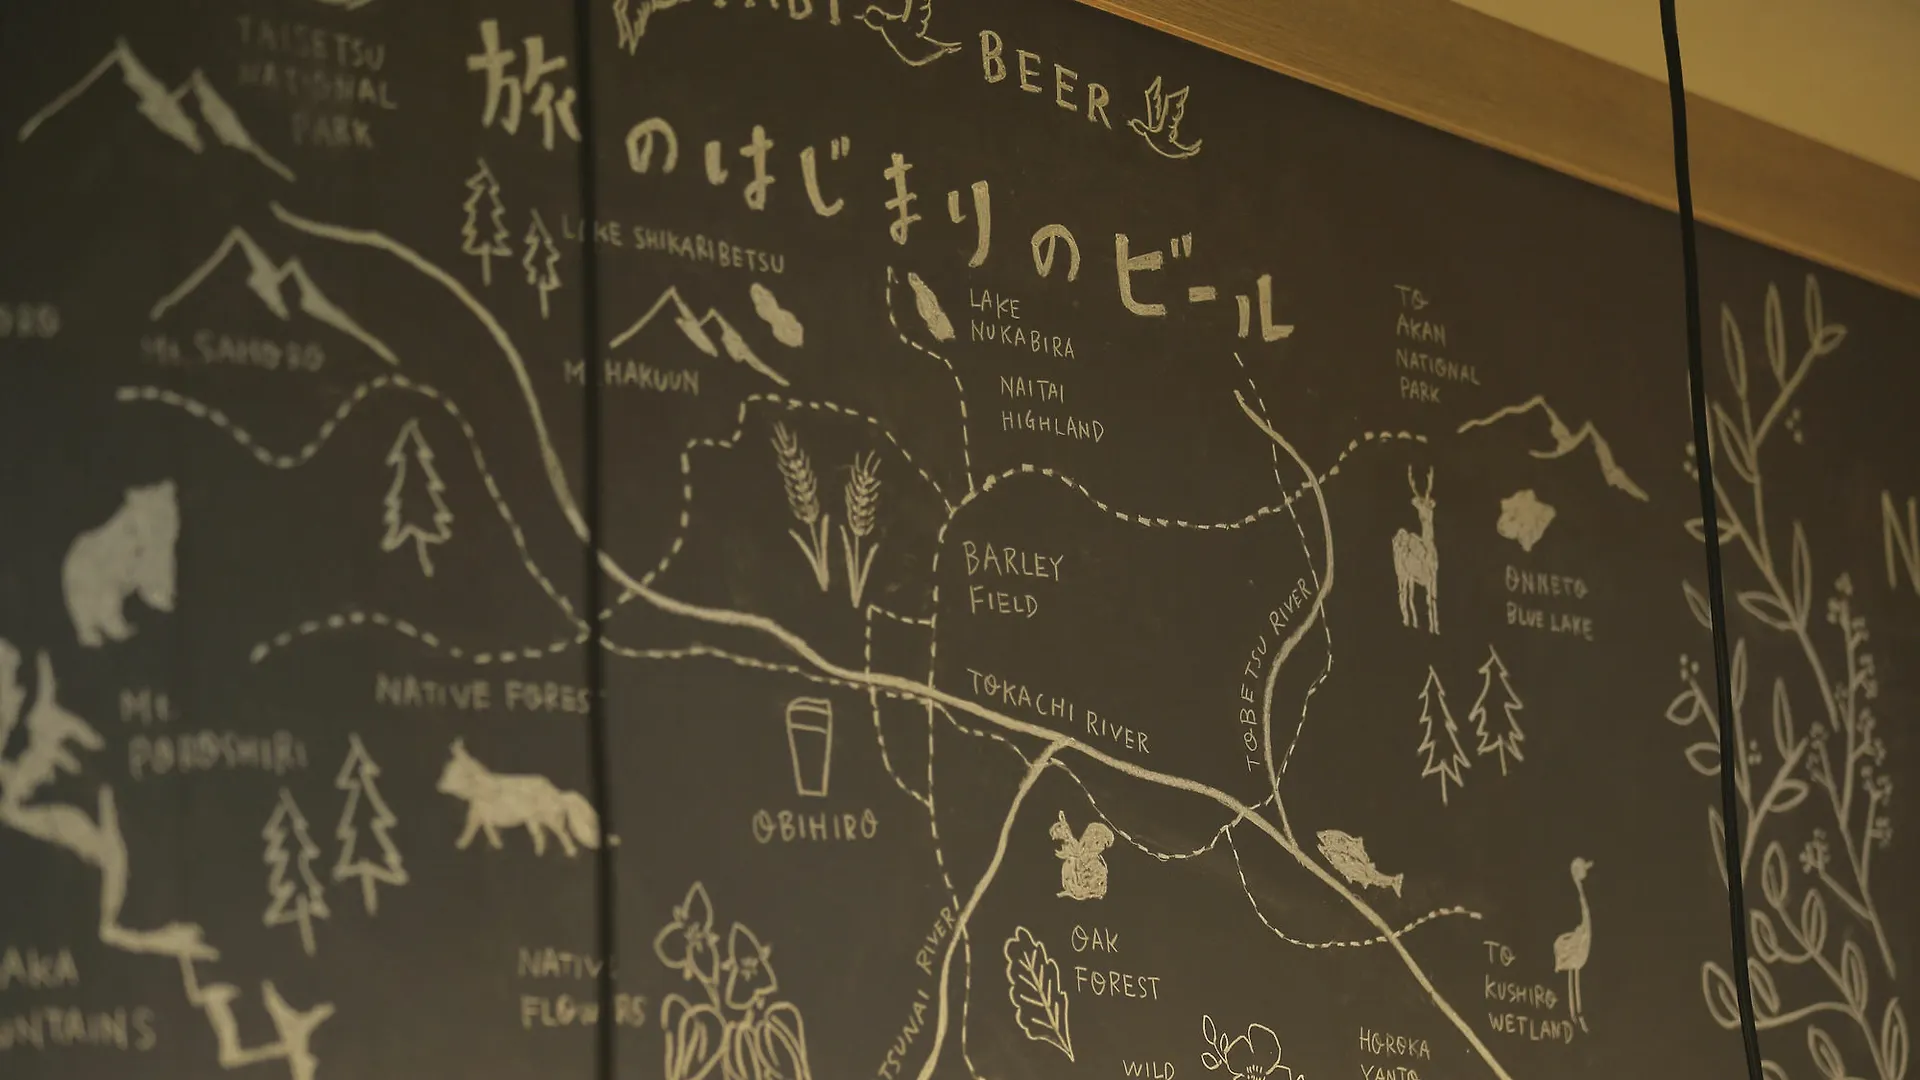 TABI
BEER
旅のはじまりのビール
TAISETSU
NATIONAL
PARK
LAKE SHIKARIBETSU
Mt. SAHORO
Mt. HAKUUN
LAKE
NUKABIRA
NAITAI
HIGHLAND
TO
AKAN
NATIONAL
PARK
BARLEY
FIELD
ONNETO
BLUE LAKE
TOBETSU RIVER
NATIVE FORES
TOKACHI RIVER
Mt.
POROSHIRI
OBIHIRO
OAK
FOREST
NATIV
FLOWERS
TSUNAI RIVER
TO
KUSHIRO
WETLAND
AKA
UNTAINS
WILD
HOROKA
YANTO